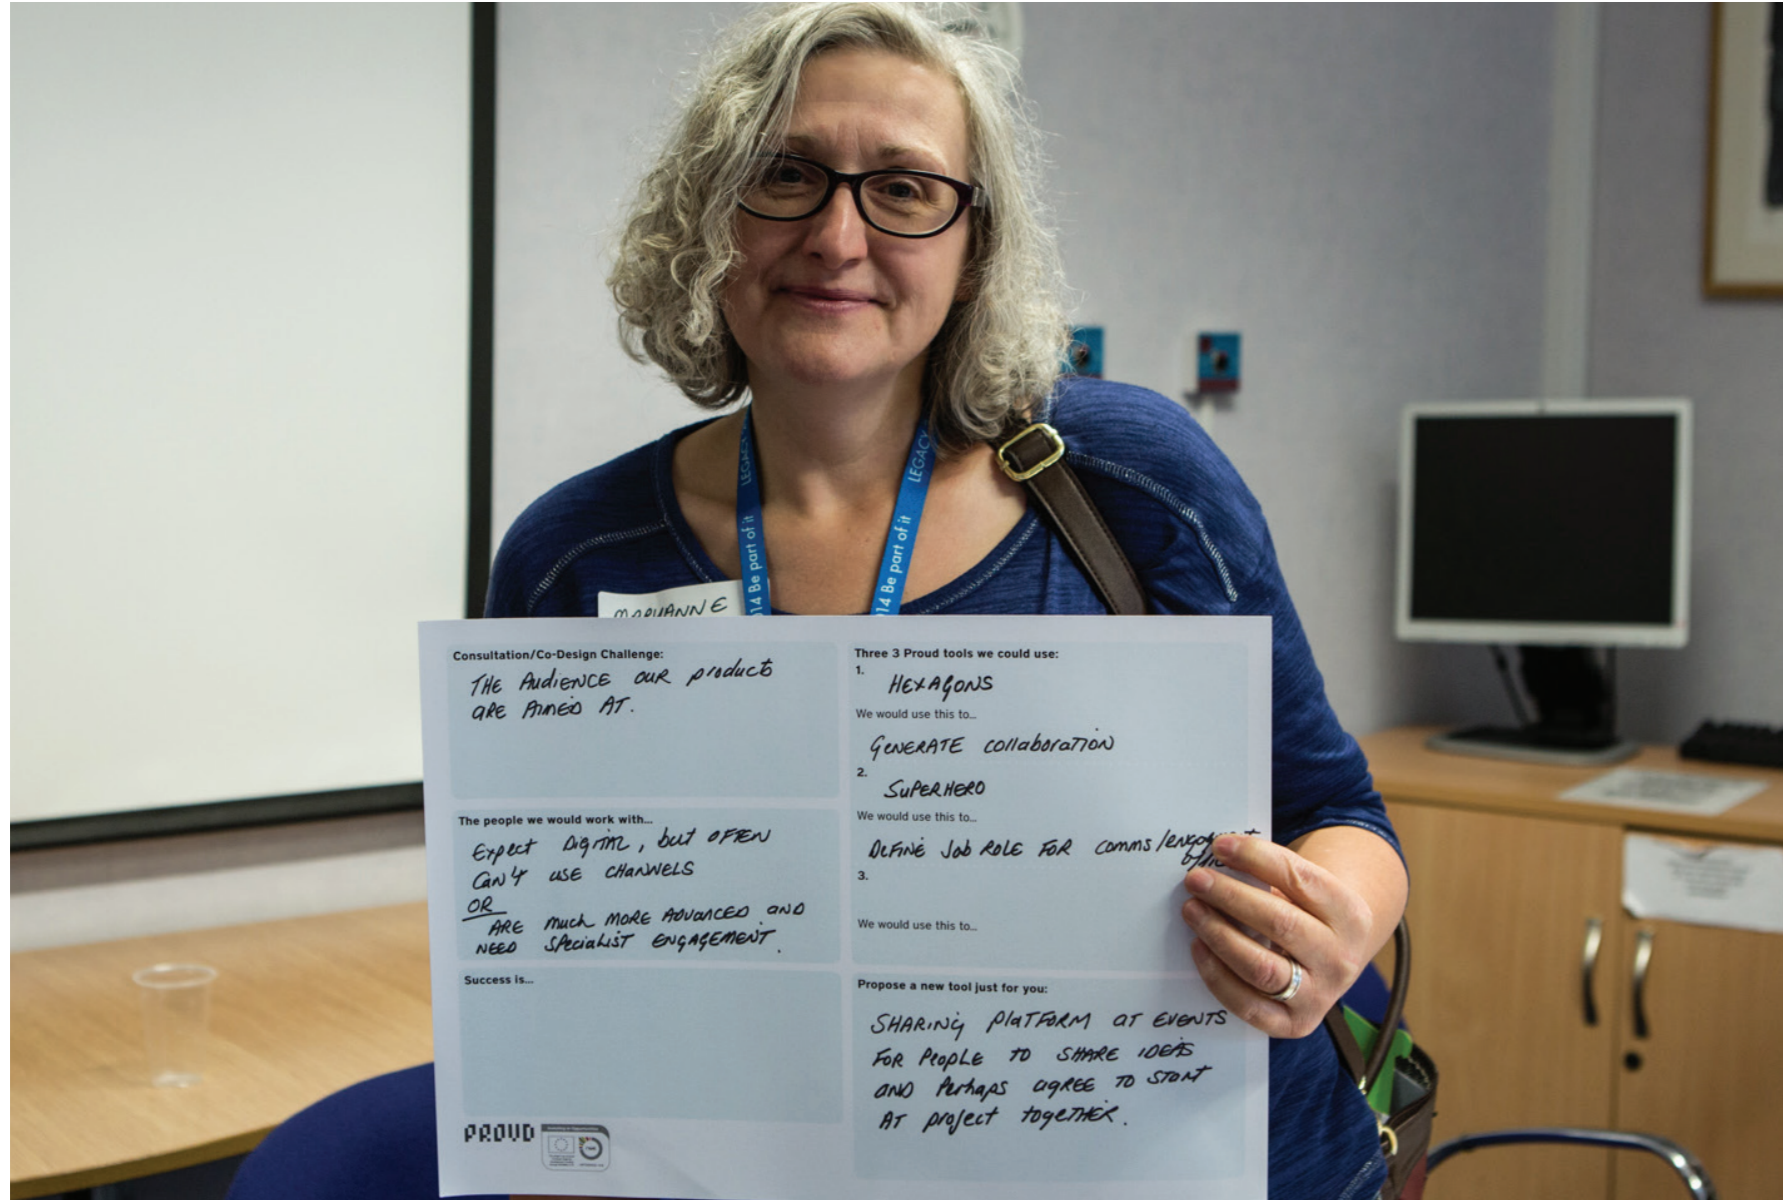 LEGACY
14 Be part of it
LEGACY
14 Be part of it
MARYANNE
Consultation/Co-Design Challenge:
THE AudiENCE OUR products
ARE AiMED AT.
The people we would work with...
Expect DigiTAL, but OFTEN
CAN'T USE CHANNELS
OR
ARE much MORE ADVANCED AND
NEED SPecialiST ENGAGEMENT.
Success is...
PROUD
Three 3 Proud tools we could use:
1.
HEXAGONS
We would use this to...
GENERATE collaboration
2.
SUPERHERO
We would use this to...
DEFINE Job ROLE FOR comms/
3.
We would use this to...
Propose a new tool just for you:
SHARING PlATFORM AT EVENTS
FOR PEOPLE TO SHARE IDEAS
AND Perhaps AGREE TO START
AT project togeTHER.